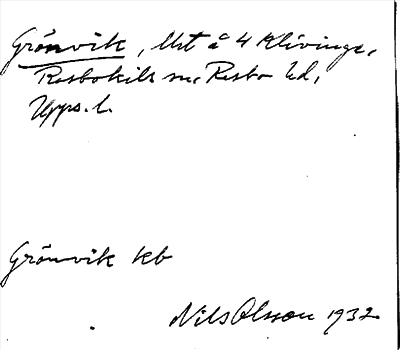 Grönvik, lht å 4 Klövinge,
Rasbokils sn, Rasbo hd,
Upps. l.
Grönvik kb
Nils Olsson 1932